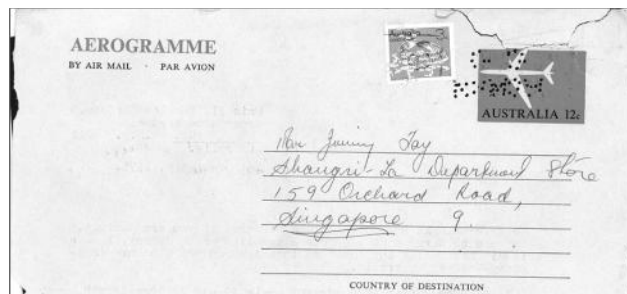 AEROGRAMME
BY AIR MAIL · PAR AVION
3
AUSTRALIA 12c
Jimmy Tay
Shangri-La Department Store
159 Orchard Road,
Singapore 9.
COUNTRY OF DESTINATION